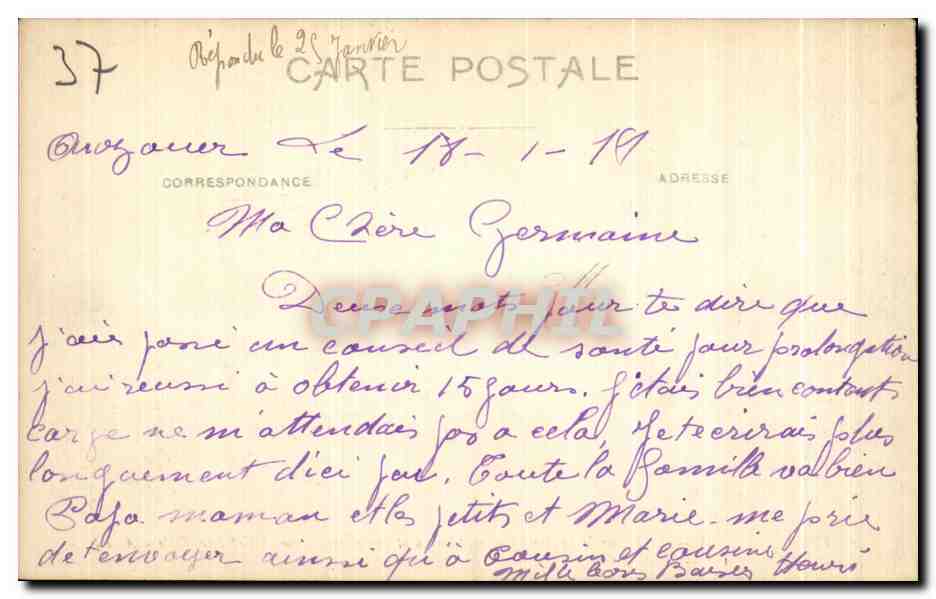 37
Répondu le 25 Janvier
CARTE POSTALE
Le 18-1-19
CORRESPONDANCE
ADRESSE
Ma Chère Germaine
Deux mots pour te dire que
j'ais passé un conseil de santé pour prolongation
j'ai reussi à obtenir 15 jours. J'étais bien contant
car je ne m'attendais pas a cela, Je tecrirais plus
longuement dici peu. Toute la famille va bien
Papa maman et les petits et Marie. me prie
de tenvoyer ainsi qu'à Cousin et cousine
Mille bons Baisers Henri
CPAPHIL